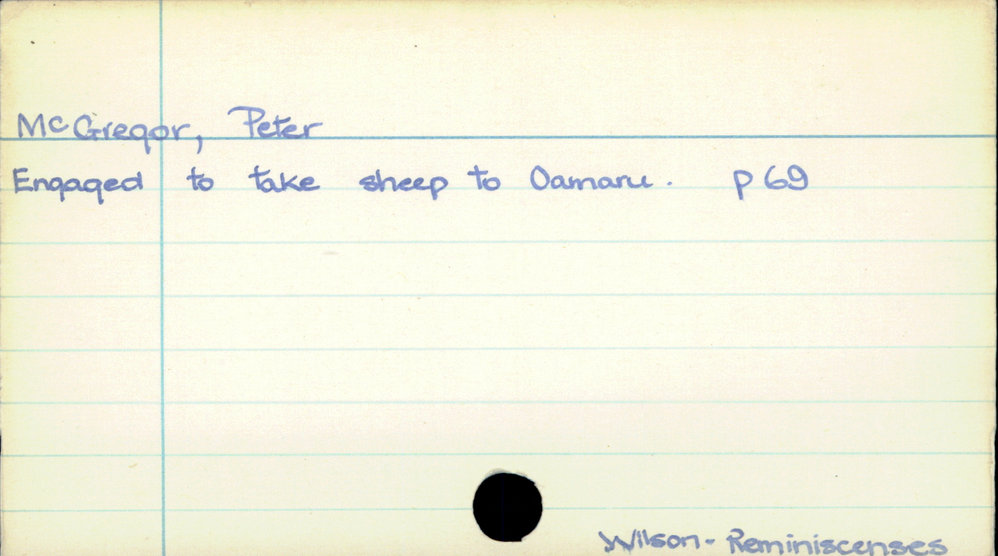 McGregor, Peter
Engaged to take sheep to Oamaru. p 69
Wilson - Reminiscenses